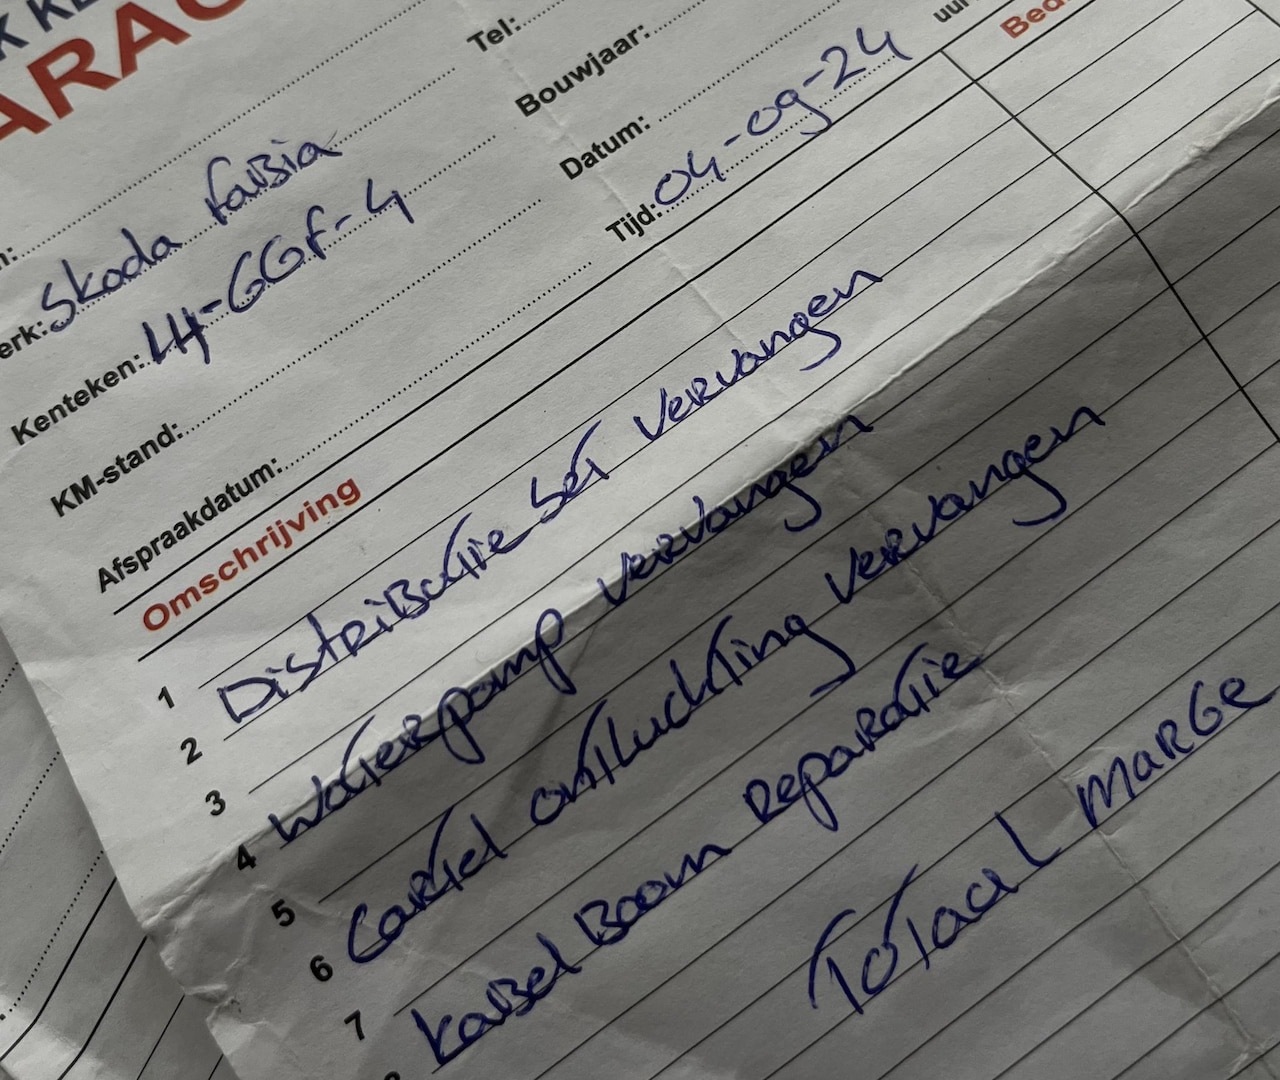 Tel:
Bouwjaar:
Datum:
Tijd: 04-09-24
Skoda faBia
Kenteken: 44-GGf-4
KM-stand:
Afspraakdatum:
Omschrijving
1 DistriButie set vervangen
2
3
4 Waterpomp vervangen
5
6 Cartel ontluchting vervangen
7 kaBel Boom Reparatie
Totaal Marge